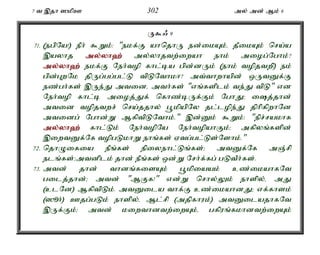 7 வ இதா ஸமிஊ 302 அல் அன் ஆம் 6
ரு௬/௯
71. (நபியே) நீர் கூறும்: "நமக்கு யாதொரு நன்மையும், தீமையும் செய்ய
இயலாத அல்லாஹ் அல்லாதவற்றையா நாம் அழைப்போம்?
அல்லாஹ் நமக்கு நேர்வழி காட்டிய பின்னரும் (நாம் வழிதவறி) நம்
பின்புறமே திருப்பப்பட்டு விடுவோமா? அவ்வாறாயின் ஒருவனுக்கு
நண்பர்கள் இருந்து அவனை, அவர்கள் "எங்களிடம் வந்து விடு" என
நேர்வழி காட்டி அழைத்துக் கொண்டிருக்கும் போது; ஷைத்தான்
அவனை வழிதவறச் செய்ததால் பூமியிலே தட்டழிந்து திரிகிறானே
அவனைப் போன்று ஆகிவிடுவோம்." இன்னும் கூறும்: "நிச்சயமாக
அல்லாஹ் காட்டும் நேர்வழியே நேர்வழியாகும்; அகிலங்களின்
இறைவனுக்கே வழிபடுமாறு நாங்கள் ஏவப்பட்டுள்ளோம்."
72. தொழுகையை நீங்கள் நிலைநாட்டுங்கள்; அவனுக்கே அஞ்சி
நடங்கள்;அவனிடம் தான் நீங்கள் ஒன்று சேர்க்கப் படுவீர்கள்.
73. அவன் தான் வானங்களையும் பூமியையும் உண்மையாகவே
படைத்தான்; அவன் "ஆகுக!" என்று சொல்லும் நாளில், அது
(உடனே) ஆகிவிடும். அவனுடைய வாக்கு உண்மையானது; எக்காளம்
ஊதப்படும் நாளில், ஆட்சி (அதிகாரம்) அவனுடையதாகவே
இருக்கும்; அவன் மறைவானவற்றையும், பகிரங்கமானவற்றையும்